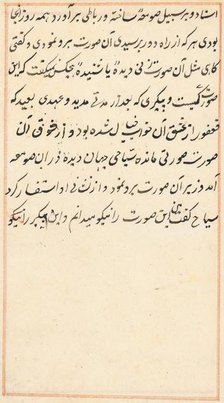 و بر سبیل صومعه ساخته و رباطی برآورد همه روز آنجا
بودی هر که از راه دور برسیدی آن صورت برو نمودی و گفتی
کسی مثل آن صورت در دیده یا شنیده هیچکس نگفت که این
صورت کیست و پیکری که بعد از مدتی مدید و عهدی بعید که
فغفور از عشق آن خواب شده بود و از شوق آن
صورت صورتی مانده سیاحی جهان دیده در آن صومعه
آمد و زهر آن صورت برو نمود و از نیک و بد او استفسار کرد
سیاح گفت این صورت را نیکو میدانم و این پیکر را نیکو